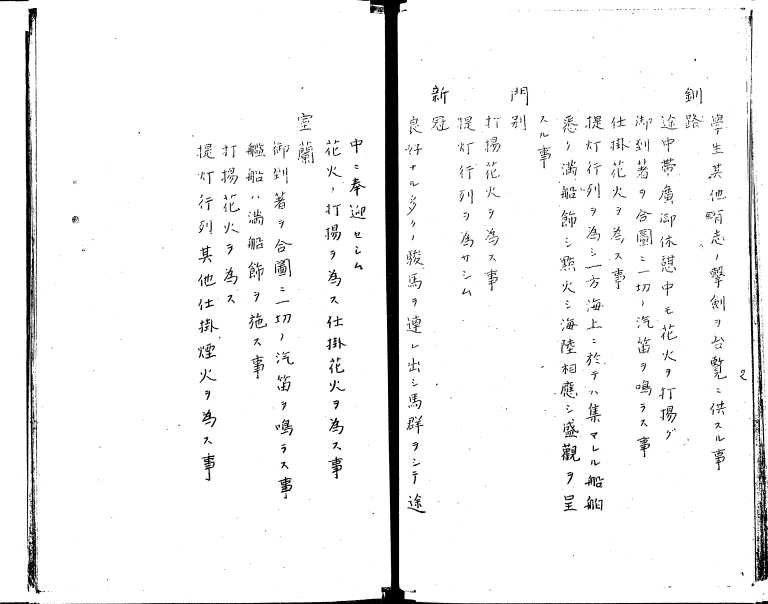 學生其他有志ノ撃劍ヲ台覧ニ供スル事
釧路
途中帶廣御休憩中モ花火ヲ打揚グ
御到著ヲ合圖ニ一切ノ汽笛ヲ鳴ラス事
仕掛花火ヲ為ス事
提灯行列ヲ為シ一方海上ニ於テハ集マレル船舶
悉ク満船飾シ點火シ海陸相應シ盛觀ヲ呈
スル事
門別
打揚花火ヲ為ス事
提灯行列ヲ為サシム
新冠
良好ナル多クノ駿馬ヲ連レ出シ馬群ヲシテ途
中ニ奉迎セシム
花火ノ打揚ヲ為ス仕掛花火ヲ為ス事
室蘭
御到著ヲ合圖ニ一切ノ汽笛ヲ鳴ラス事
艦船ハ満船飾ヲ施ス事
打揚花火ヲ為ス
提灯行列其他仕掛煙火ヲ為ス事
2